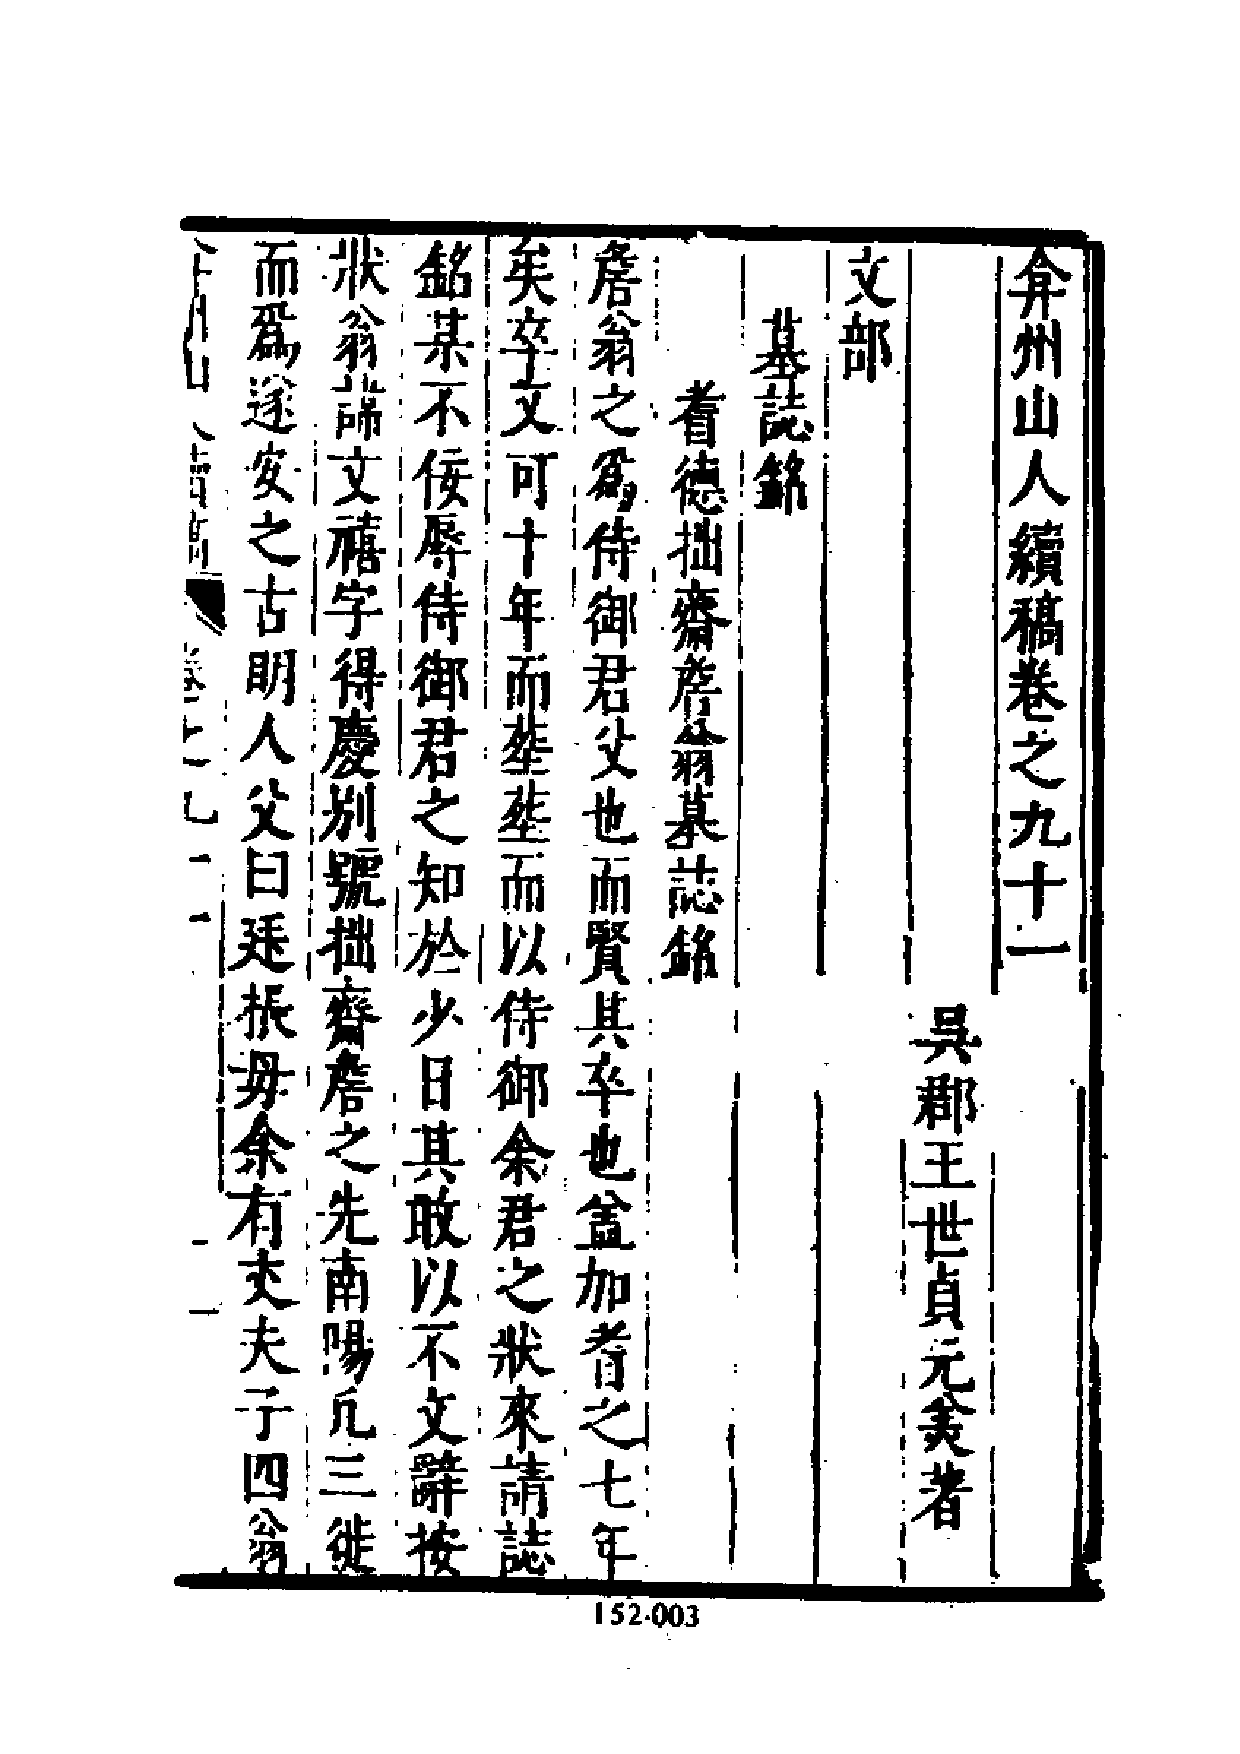 弇州山人續稿卷之九十一
吳郡王世貞元美著
文部
墓誌銘
耆德拙齋詹翁墓誌銘
詹翁之爲侍御君父也而賢其卒也益加耆之七年
矣卒又可十年而塟塟而以侍御余君之狀來請誌
銘某不佞辱侍御君之知於少日其敢以不文辭按
狀翁諱文禧字得慶别號拙齋詹之先南陽凡三徙
而爲遂安之古明人父曰廷振母余有丈夫子四翁
弇州山人續稿 卷之九十一 一
152-003